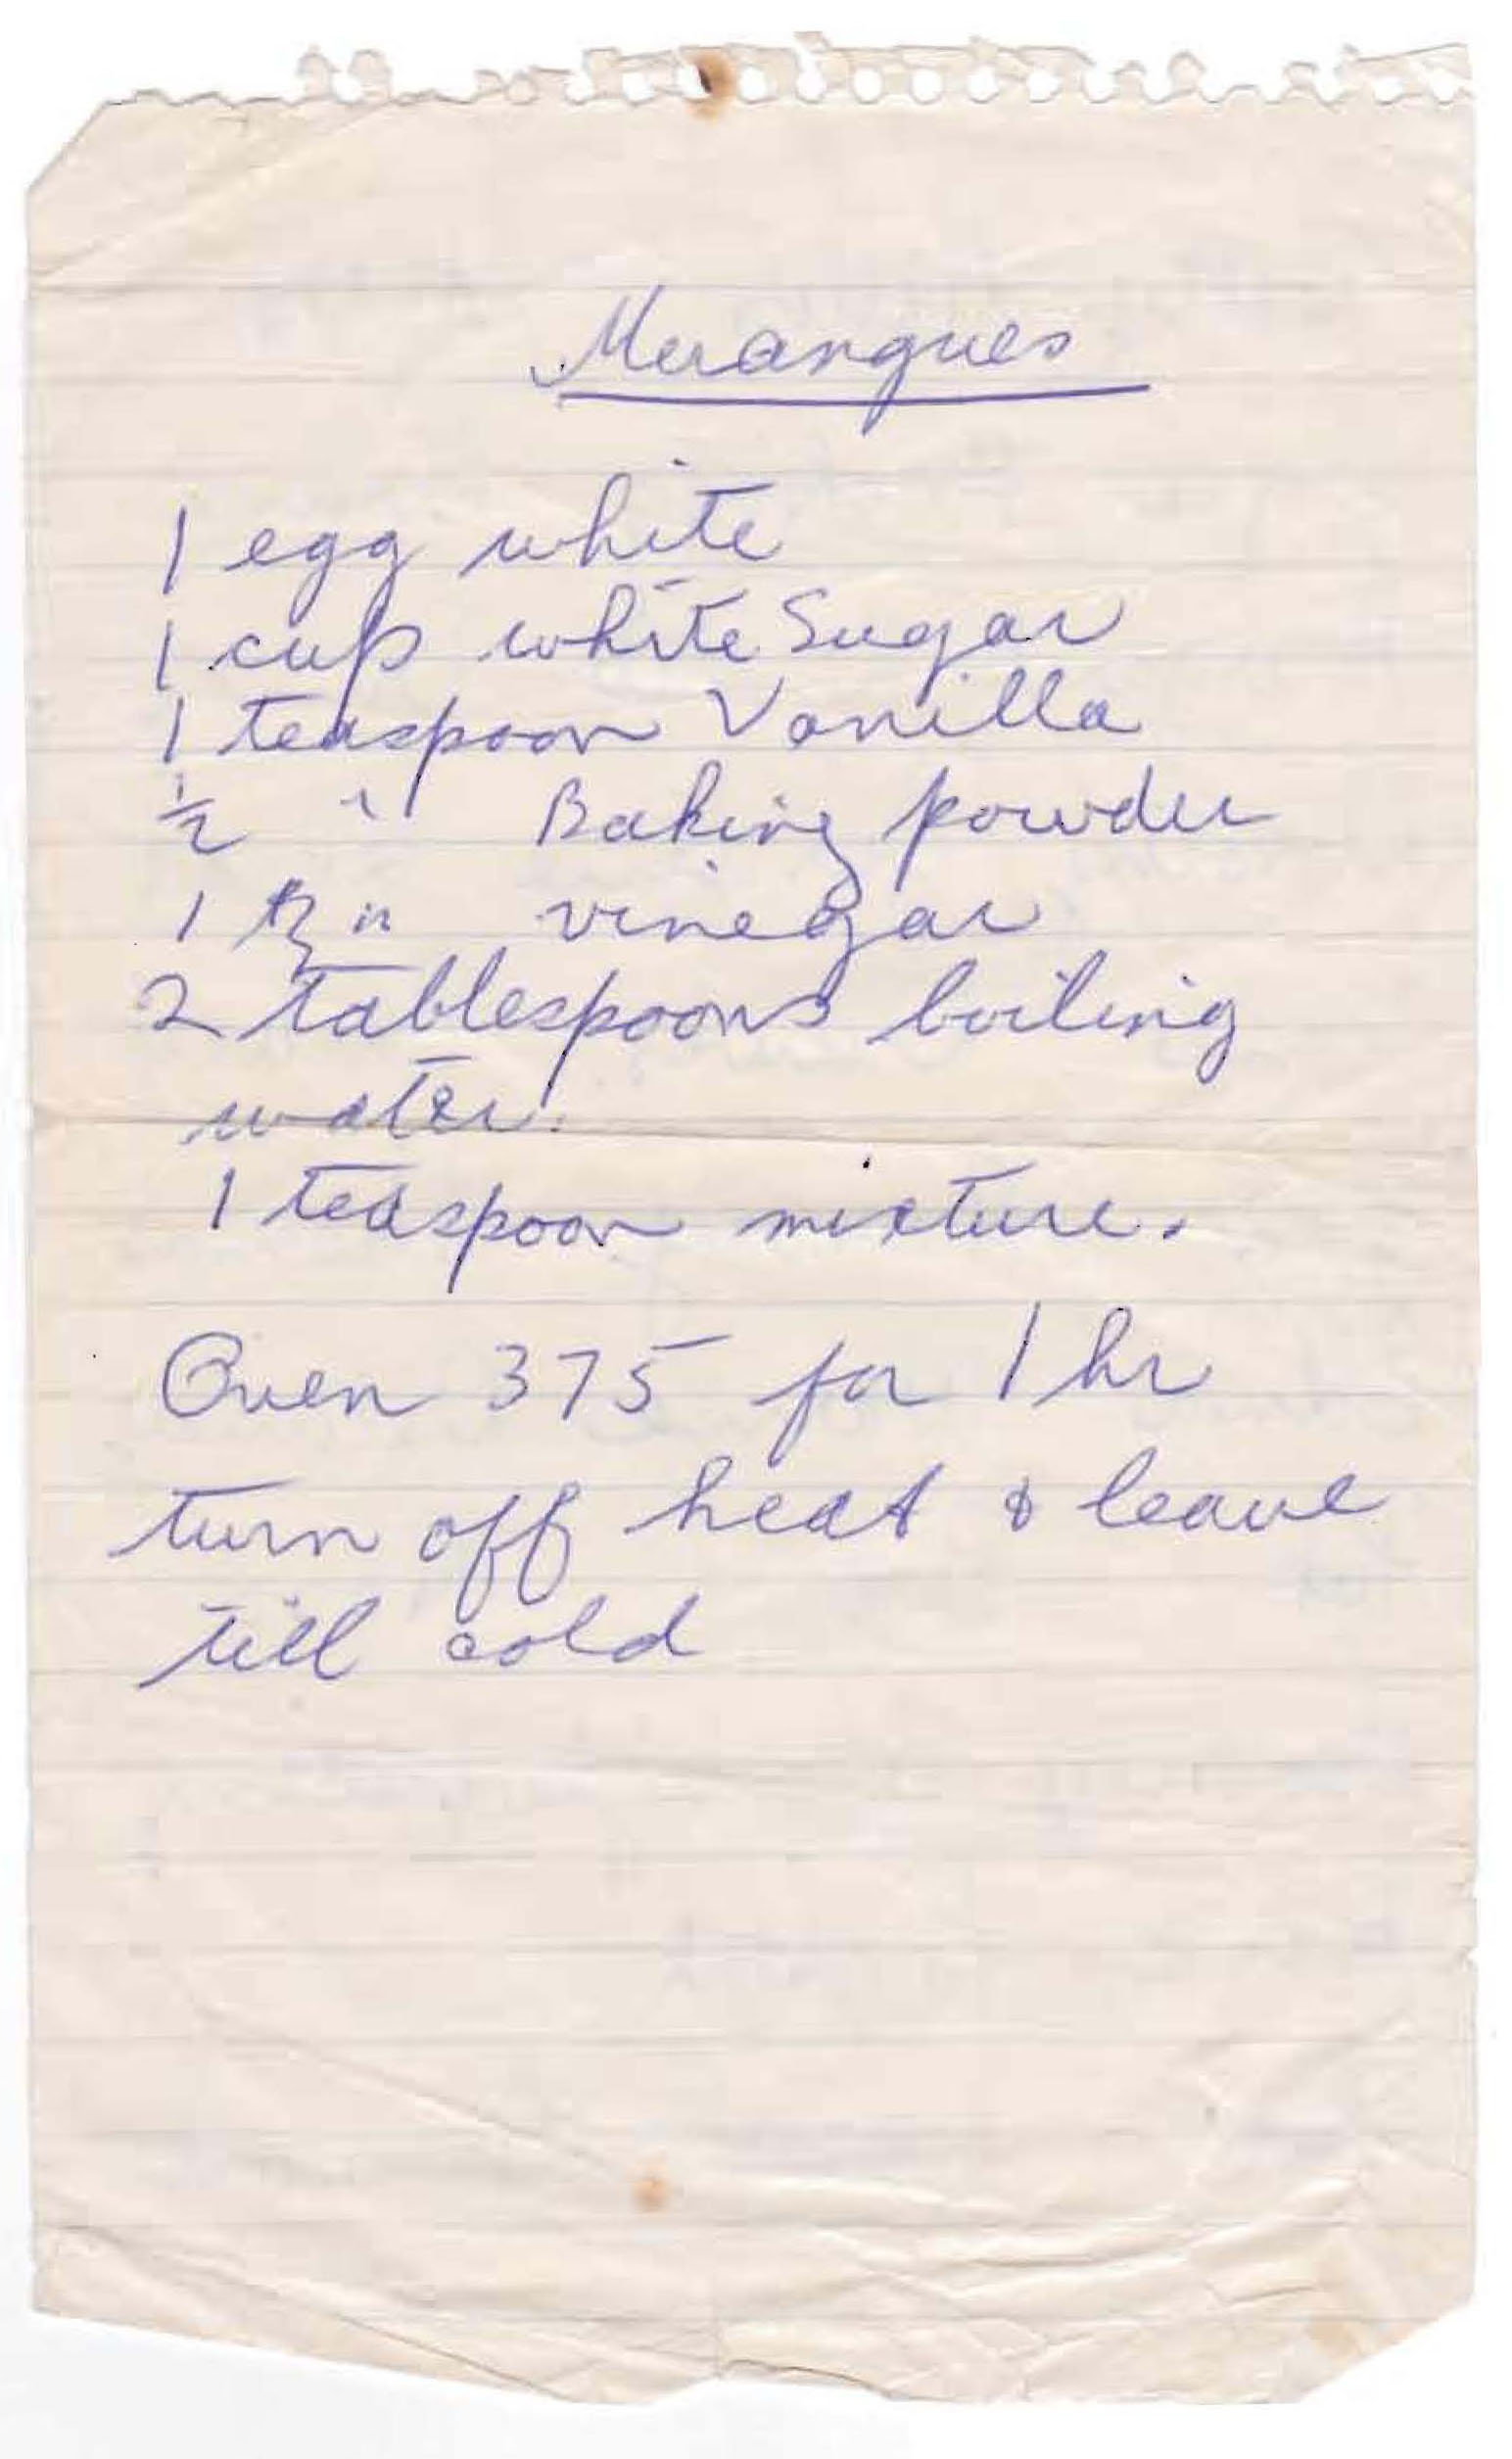 Merangues
1 egg white
1 cup white Sugar
1 teaspoon Vanilla
½ " Baking powder
1 " vinegar
2 tablespoons boiling
water.
1 teaspoon mixture.
Oven 375 for 1 hr
turn off heat & leave
till cold